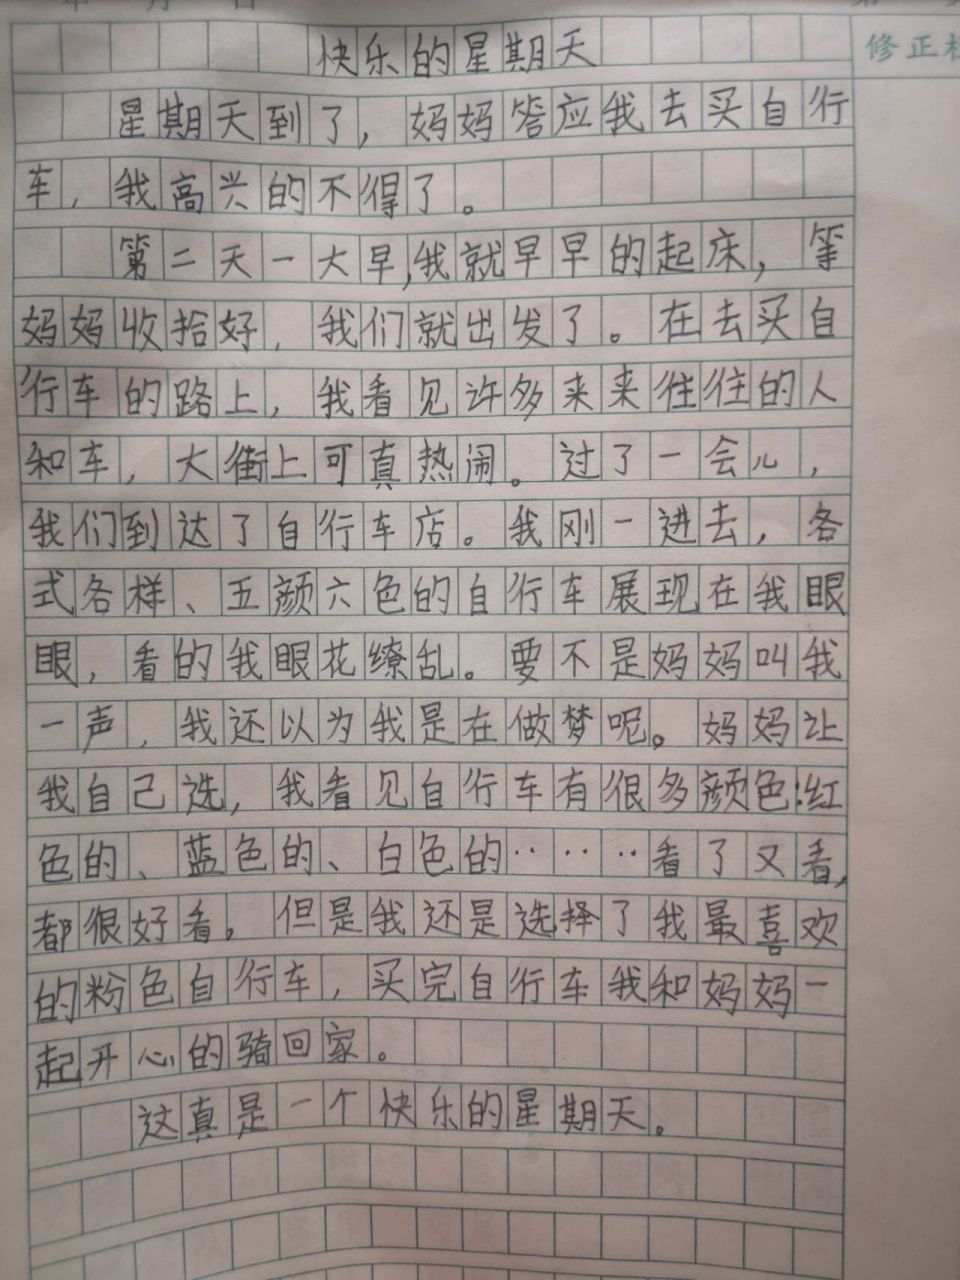 快乐的星期天
修正
星期天到了，妈妈答应我去买自行
车，我高兴的不得了。
第二天一大早,我就早早的起床，等
妈妈收拾好，我们就出发了。在去买自
行车的路上，我看见许多来来往往的人
和车，大街上可真热闹。过了一会儿，
我们到达了自行车店。我刚一进去，各
式各样、五颜六色的自行车展现在我眼
眼，看的我眼花缭乱。要不是妈妈叫我
一声，我还以为我是在做梦呢。妈妈让
我自己选，我看见自行车有很多颜色:红
色的、蓝色的、白色的……看了又看,
都很好看。但是我还是选择了我最喜欢
的粉色自行车，买完自行车我和妈妈一
起开心的骑回家。
这真是一个快乐的星期天。